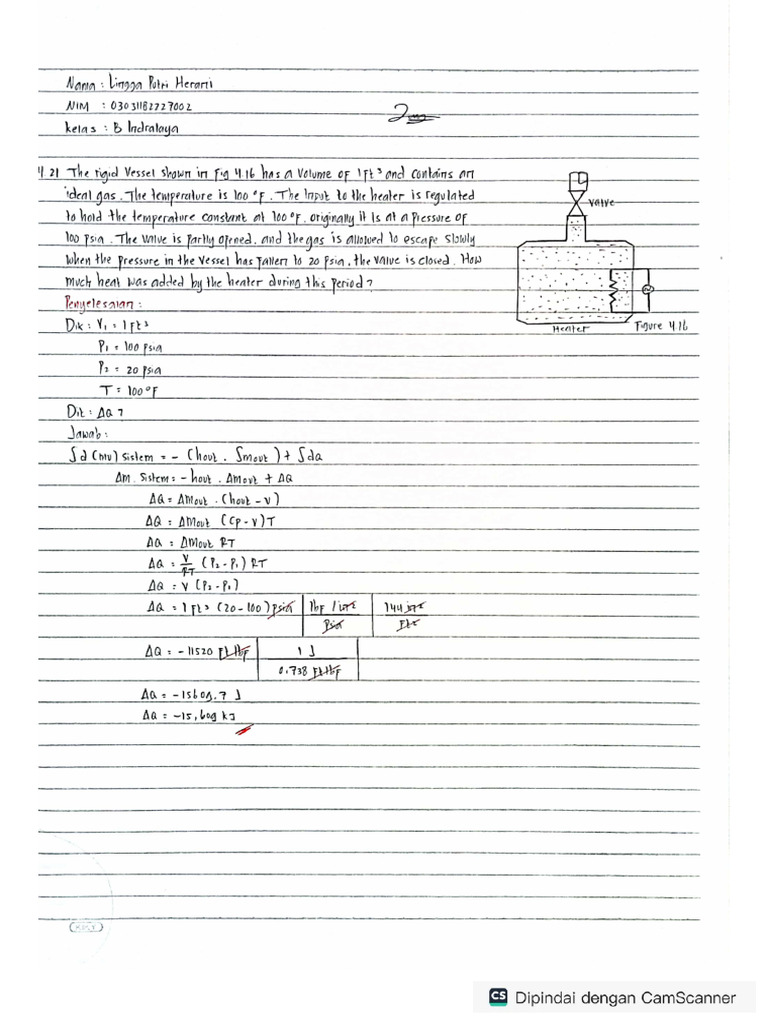 Nama : Lingga Putri Herarti
NIM : 03031182227002
Kelas : B Indralaya
4.21 The rigid vessel shown in Fig 4.16 has a volume of 1 ft³ and contains an
ideal gas. The temperature is 100 °F. The input to the heater is regulated
to hold the temperature constant at 100 °F. originally it is at a pressure of
100 psia. The valve is partly opened, and the gas is allowed to escape slowly
when the pressure in the vessel has fallen to 20 psia, the valve is closed. How
much heat was added by the heater during this period?
valve
Heater
Figure 4.16
Penyelesaian :
Dik : V₁ = 1 ft³
P₁ = 100 psia
P₂ = 20 psia
T = 100 °F
Dit : ΔQ ?
Jawab :
∫d(mu) sistem = - (hout . ∫mout) + ∫dQ
Δm. sistem = - hout . Δmout + ΔQ
ΔQ = Δmout . (hout - v)
ΔQ = Δmout (Cp - v)T
ΔQ = Δmout RT
ΔQ = V/RT (P₂ - P₁) RT
ΔQ = V (P₂ - P₁)
ΔQ = 1 ft³ (20 - 100) psia | 1 lbf / in² / psia | 144 in² / ft²
ΔQ = -11520 ft lbf | 1 J / 0.738 ft lbf
ΔQ = -15609.7 J
ΔQ = -15,609 kJ
KIKY
CS Dipindai dengan CamScanner